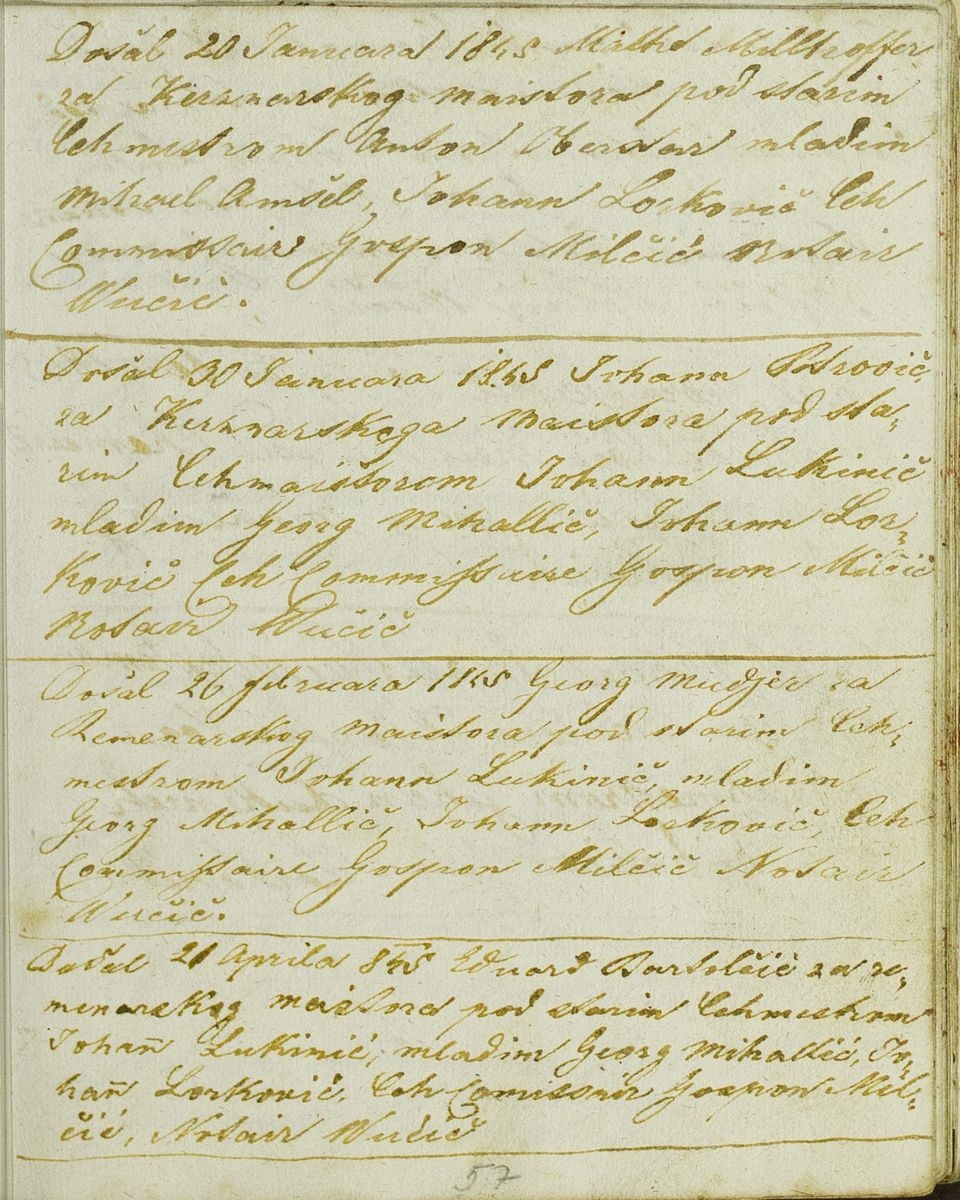 Došal 20 Januara 1845 Milthoffer
za Kerznarskog maistora pod starim
Cehmestrom Anton Oberster mladim
Mihael Amšel, Johann Lorković Ceh
Commissair Gospon Milčić Notair
Wučić.
Došal 30 Januara 1845 Johann Petrović
za Kerznarskoga Maistora pod sta-
rim Cehmaistorom Johann Lukinič
mladim Georg Mihallič, Johann Lor-
kovič Ceh Commissaire Gospon Milčič
Notair Wučič
Došal 26 februara 1845 Georg Mudjer za
Remenarskog Maistora pod starim Ceh-
mestrom Johann Lukinič, mladim
Georg Mihallič, Johann Lorkovič, Ceh
Commissaire Gospon Milčič Notair
Wučič.
Došal 21 Aprila 845 Eduard Bartolčič za re-
menarskog maistora pod starim Cehmestrom
Johan̄ Lukinić, mladim Georg Mihallić, Jo-
han̄ Lorković, Ceh Comissair Gospon Mil-
čić, Notair Wučič
57